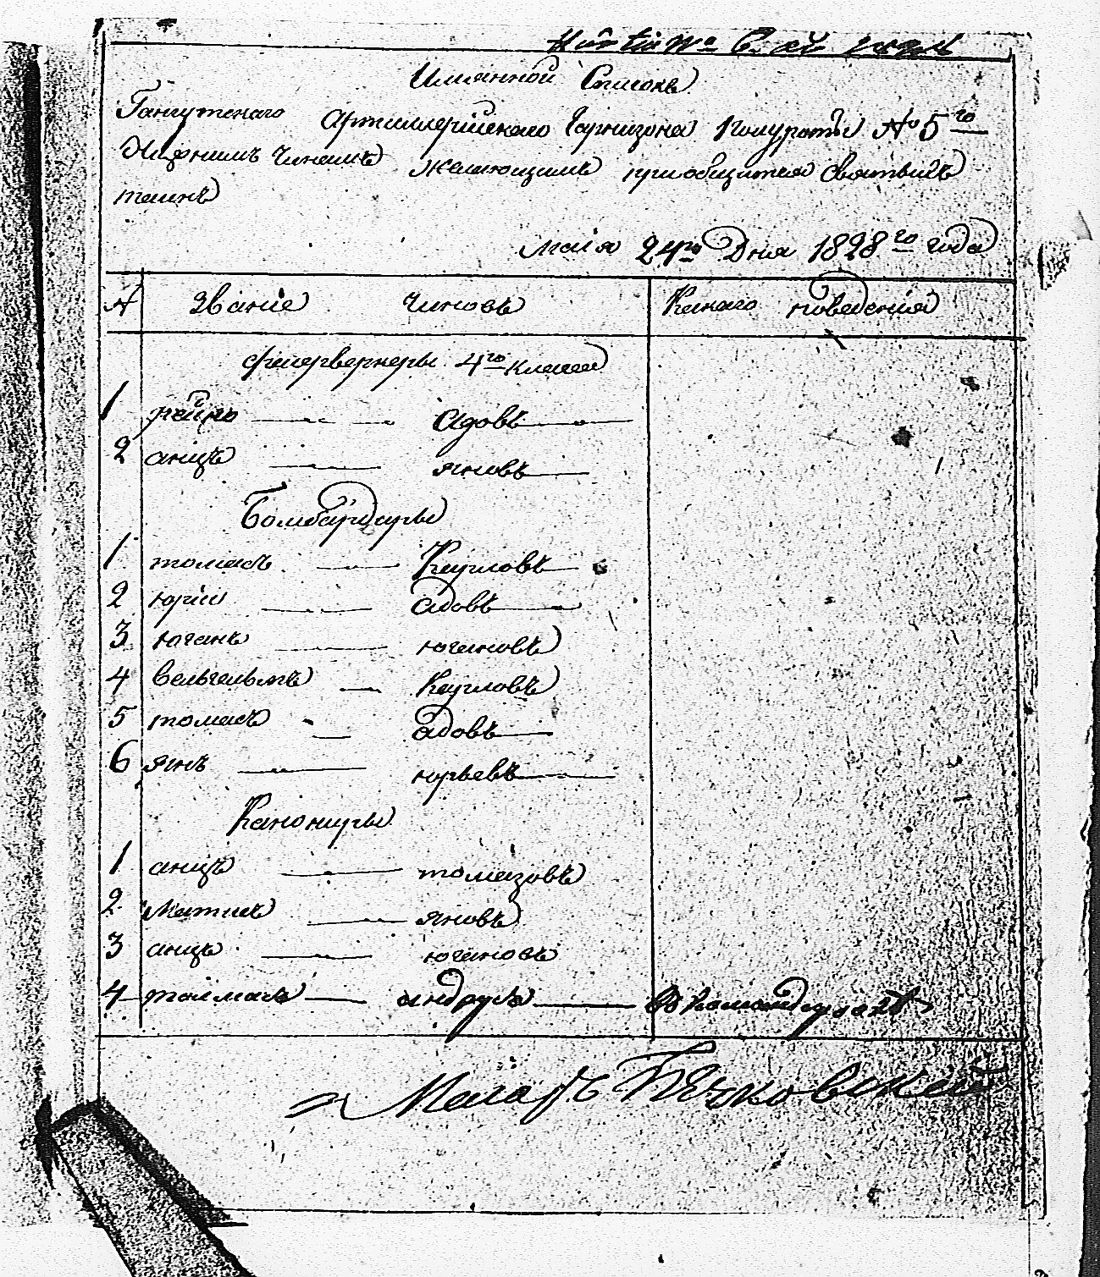 Имянной Списокъ
Гангутскаго Артиллерійскаго Гарнизона Полуроты № 5го
Нижнимъ Чинамъ желающимъ приобщится Святыхъ
таинъ
маія 24го Дня 1828го года
№ Званіе Чиновъ Какаго поведенія
Фейерверкеры 4го класса
1 Рейно Адовъ
2 анцъ яновъ
Бомбардиры
1 томасъ Карловъ
2 юрій адовъ
3 юганъ югановъ
4 вельгельмъ Карловъ
5 томасъ адовъ
6 янъ юрьевъ
Канониры
1 анцъ томазовъ
2 Матисъ яновъ
3 анцъ югановъ
4 андрусъ
Маіоръ